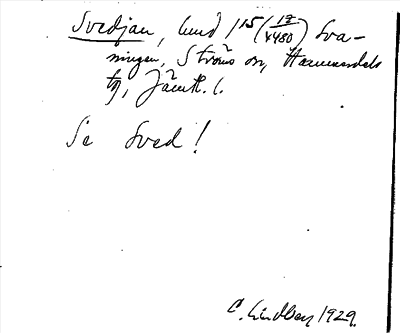 Svedjan, lund 1 15 (17/1480) Sva-
ningen, Ströms sn, Hammerdals
tg, Jämtl. l.
Se Sved!
C. Lindberg 1929.